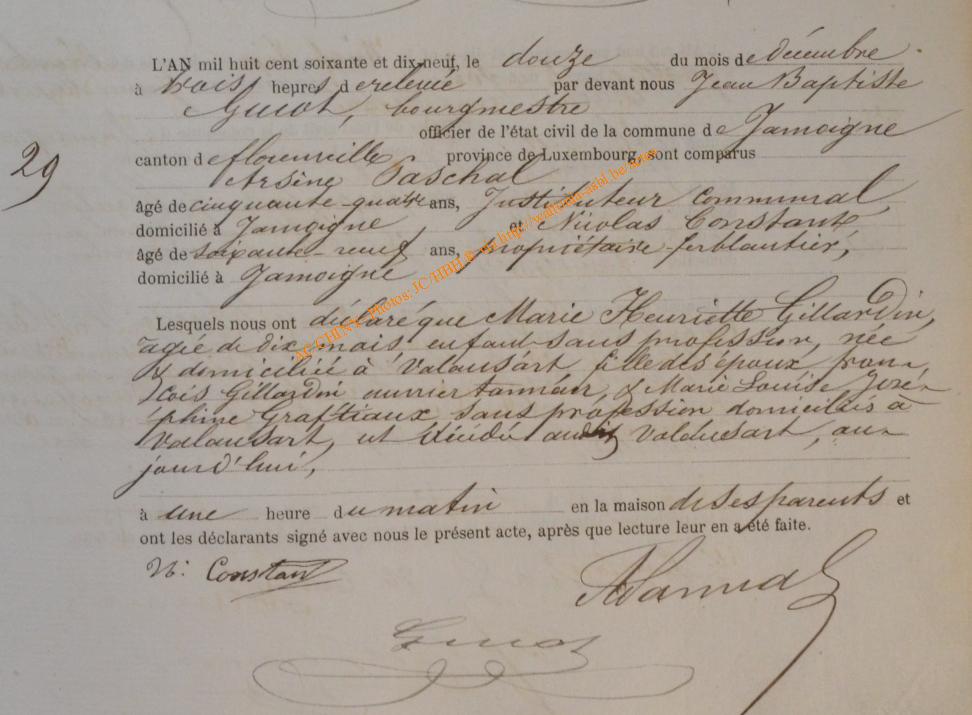 L'AN mil huit cent soixante et dix-neuf, le douze du mois de décembre
à trois heures de relevée par devant nous Jean Baptiste
Guiot, bourgmestre
officier de l'état civil de la commune de Jamoigne
29
canton de florenville, province de Luxembourg, sont comparus
Arsène Paschal
âgé de cinquante-quatre ans, Instituteur communal,
domicilié à Jamoigne et Nicolas Constant,
âgé de soixante-neuf ans, propriétaire-ferblantier,
domicilié à Jamoigne
Lesquels nous ont déclaré que Marie Henriette Gillardin,
agée de dix mois enfant sans profession, née
& domiciliée à Valansart, fille des époux fran-
çois Gillardin ouvrier tanneur, & Marie Louise José-
phine Graftiaux sans profession domiciliés à
Valansart, est décédée audit Valansart, au-
jourd'hui,
à une heure du matin en la maison de ses parents et
ont les déclarants signé avec nous le présent acte, après que lecture leur en a été faite.
N: Constant
Guiot
AC CHINY - Photos: JC/HBH